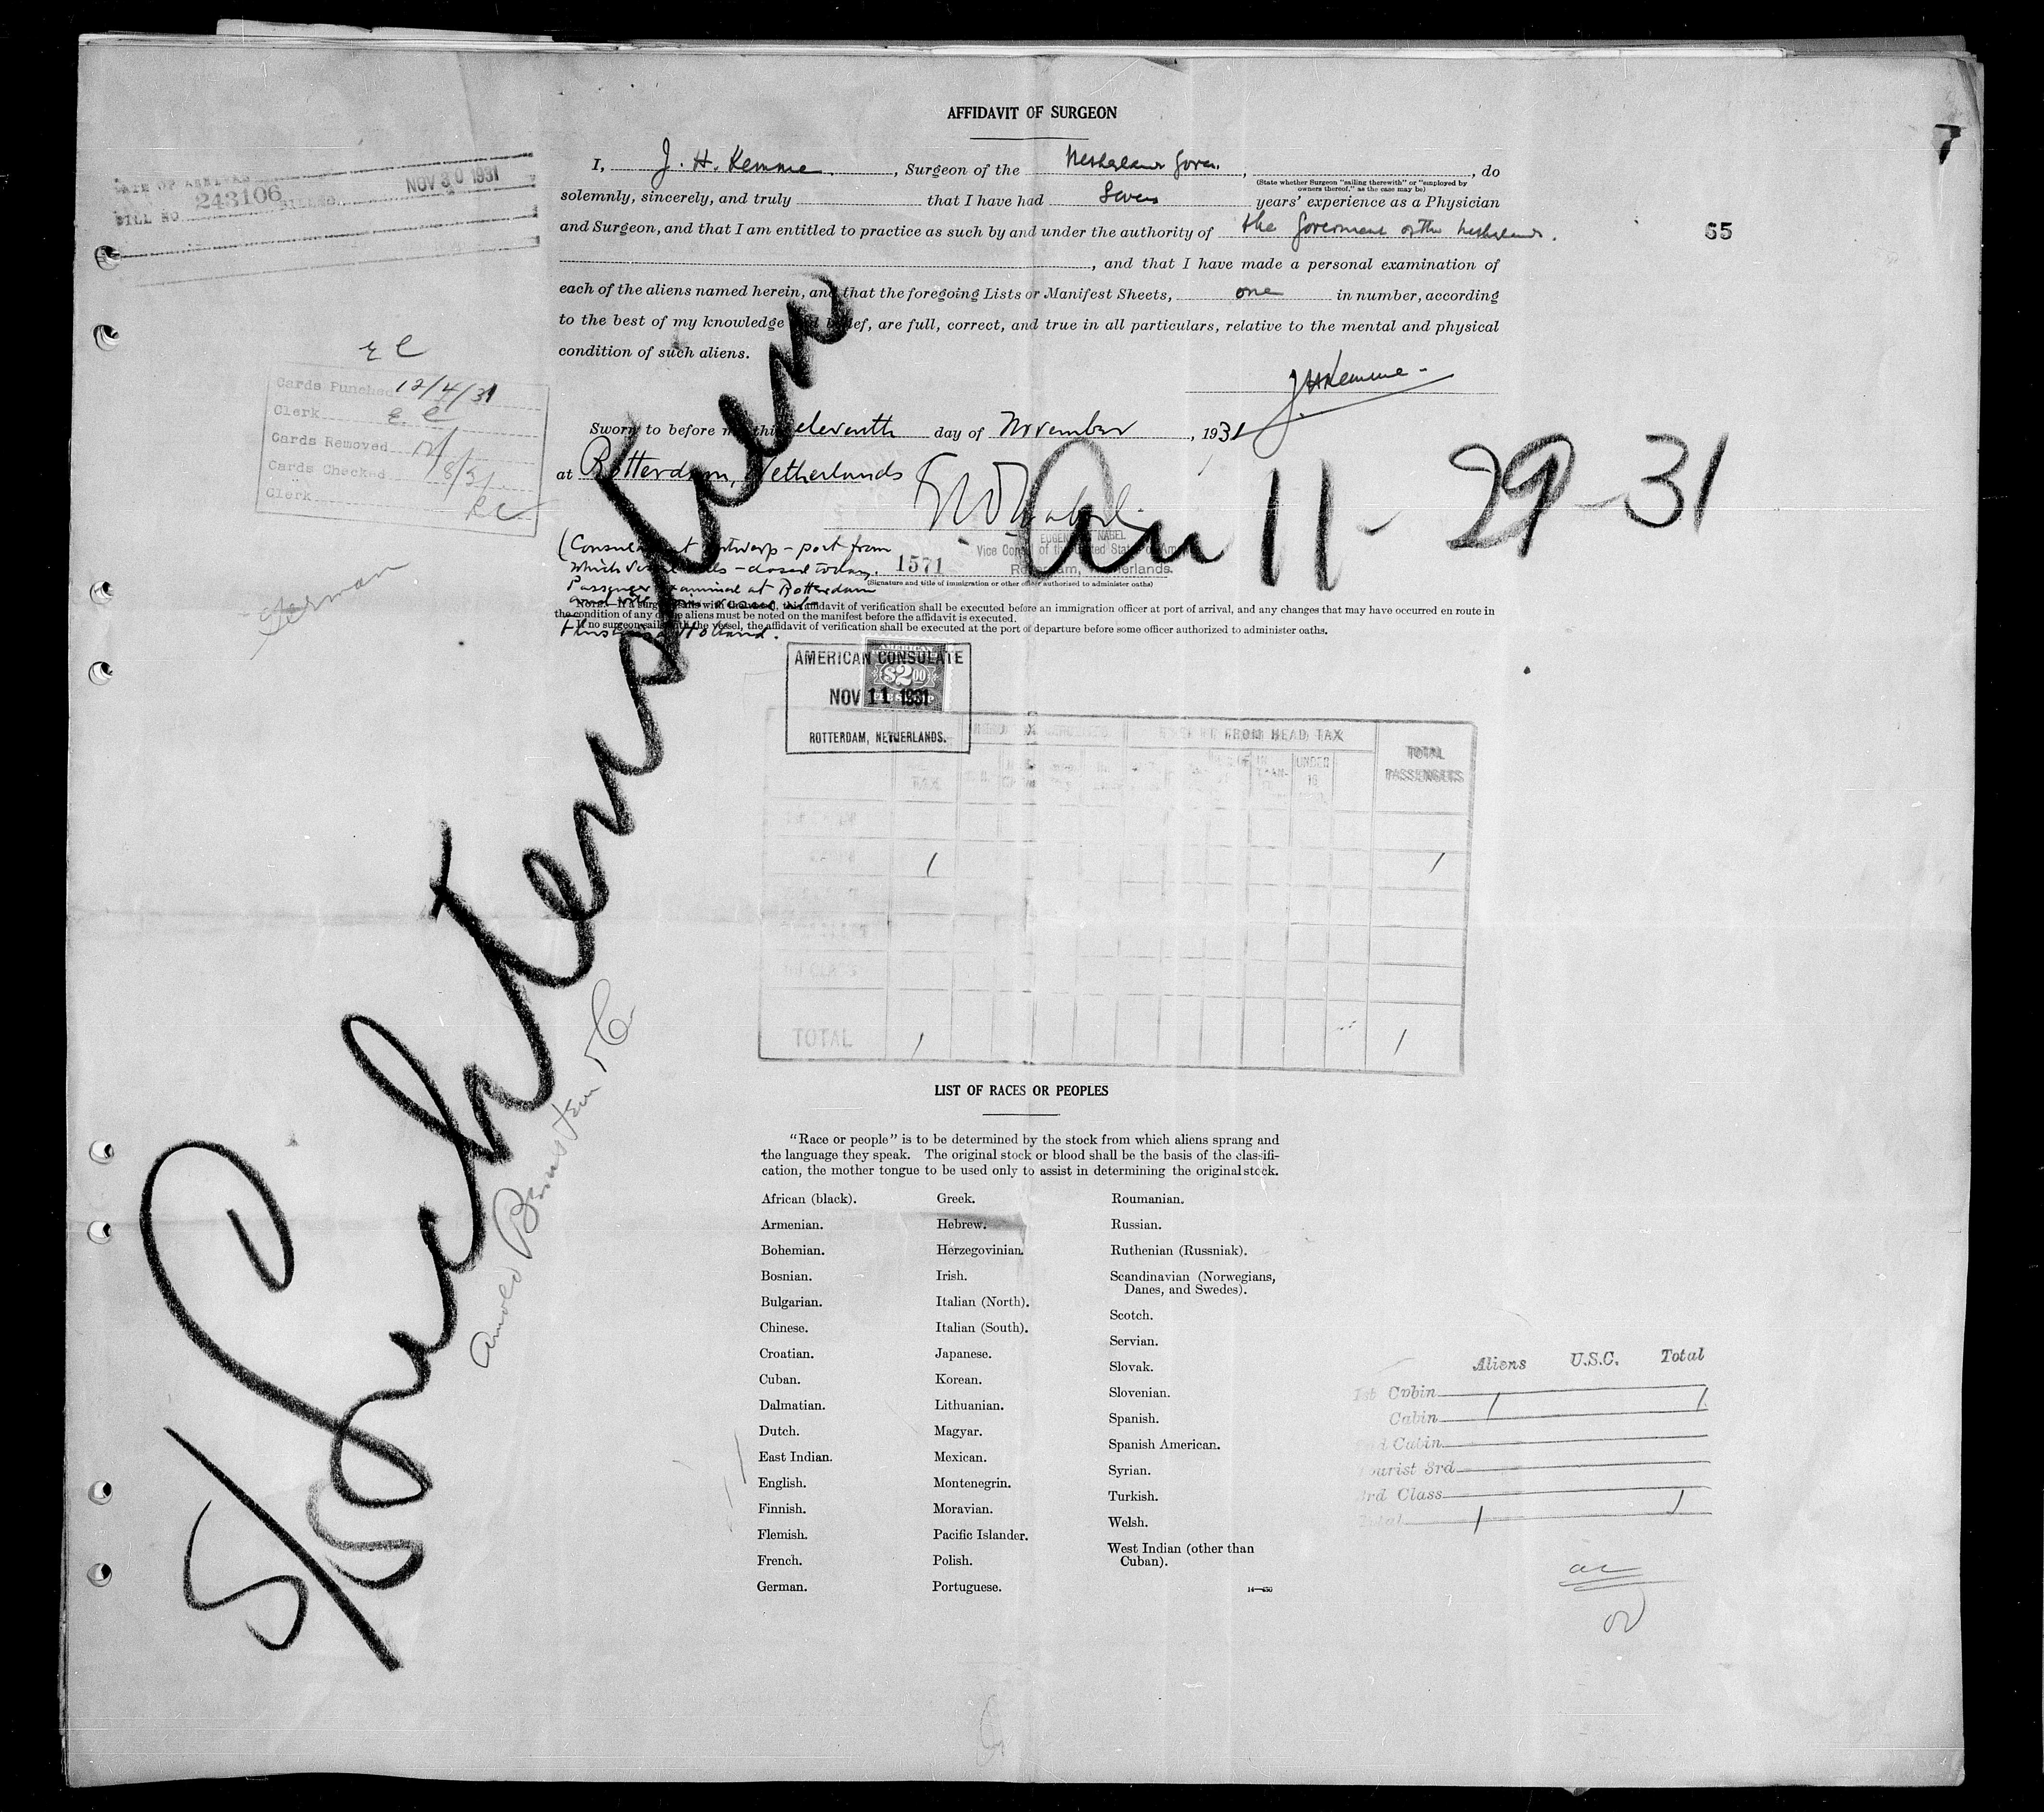 7
AFFIDAVIT OF SURGEON
I, J. H. Kemme, Surgeon of the Netherlands Gover., , do
(State whether Surgeon "sailing therewith" or "employed by owners thereof," as the case may be)
solemnly, sincerely, and truly that I have had Seven years' experience as a Physician
and Surgeon, and that I am entitled to practice as such by and under the authority of the Government of the Netherlands.
, and that I have made a personal examination of
each of the aliens named herein, and that the foregoing Lists or Manifest Sheets, one in number, according
to the best of my knowledge and belief, are full, correct, and true in all particulars, relative to the mental and physical
condition of such aliens.
JHKemme
Sworn to before me this eleventh day of November, 1931
at Rotterdam, Netherlands
DATE OF ARRIVAL NOV 30 1931
BILL NO. 243106
65
E C
Cards Punched 12/4/31
Clerk E. C
Cards Removed
Cards Checked
Clerk
German
S/S Luchtenstein
Arr 11-29-31
Arnold Bernstein
(Consulate at Antwerp - port from
which vessel sails - closed today.
Passenger examined at Rotterdam
Holland.
1571
Vice Consul of the United States of America
Rotterdam, Netherlands.
(Signature and title of immigration or other officer authorized to administer oaths)
NOTE.—If a surgeon sails with the vessel, this affidavit of verification shall be executed before an immigration officer at port of arrival, and any changes that may have occurred en route in
the condition of any of the aliens must be noted on the manifest before the affidavit is executed.
If no surgeon sails with the vessel, the affidavit of verification shall be executed at the port of departure before some officer authorized to administer oaths.
AMERICAN CONSULATE
NOV 11 1931
ROTTERDAM, NETHERLANDS.
AMERICAN
$2.00
EXEMPT FROM HEAD TAX
TOTAL
PASSENGERS
UNDER
16
1 1
TOTAL 1 1
LIST OF RACES OR PEOPLES
"Race or people" is to be determined by the stock from which aliens sprang and
the language they speak. The original stock or blood shall be the basis of the classifi-
cation, the mother tongue to be used only to assist in determining the original stock.
African (black).
Armenian.
Bohemian.
Bosnian.
Bulgarian.
Chinese.
Croatian.
Cuban.
Dalmatian.
Dutch.
East Indian.
English.
Finnish.
Flemish.
French.
German.
Greek.
Hebrew.
Herzegovinian.
Irish.
Italian (North).
Italian (South).
Japanese.
Korean.
Lithuanian.
Magyar.
Mexican.
Montenegrin.
Moravian.
Pacific Islander.
Polish.
Portuguese.
Roumanian.
Russian.
Ruthenian (Russniak).
Scandinavian (Norwegians,
Danes, and Swedes).
Scotch.
Servian.
Slovak.
Slovenian.
Spanish.
Spanish American.
Syrian.
Turkish.
Welsh.
West Indian (other than
Cuban).
14—430
Aliens U.S.C. Total
1st Cabin
Cabin 1 1
2nd Cabin
Tourist 3rd
3rd Class
Total 1 1